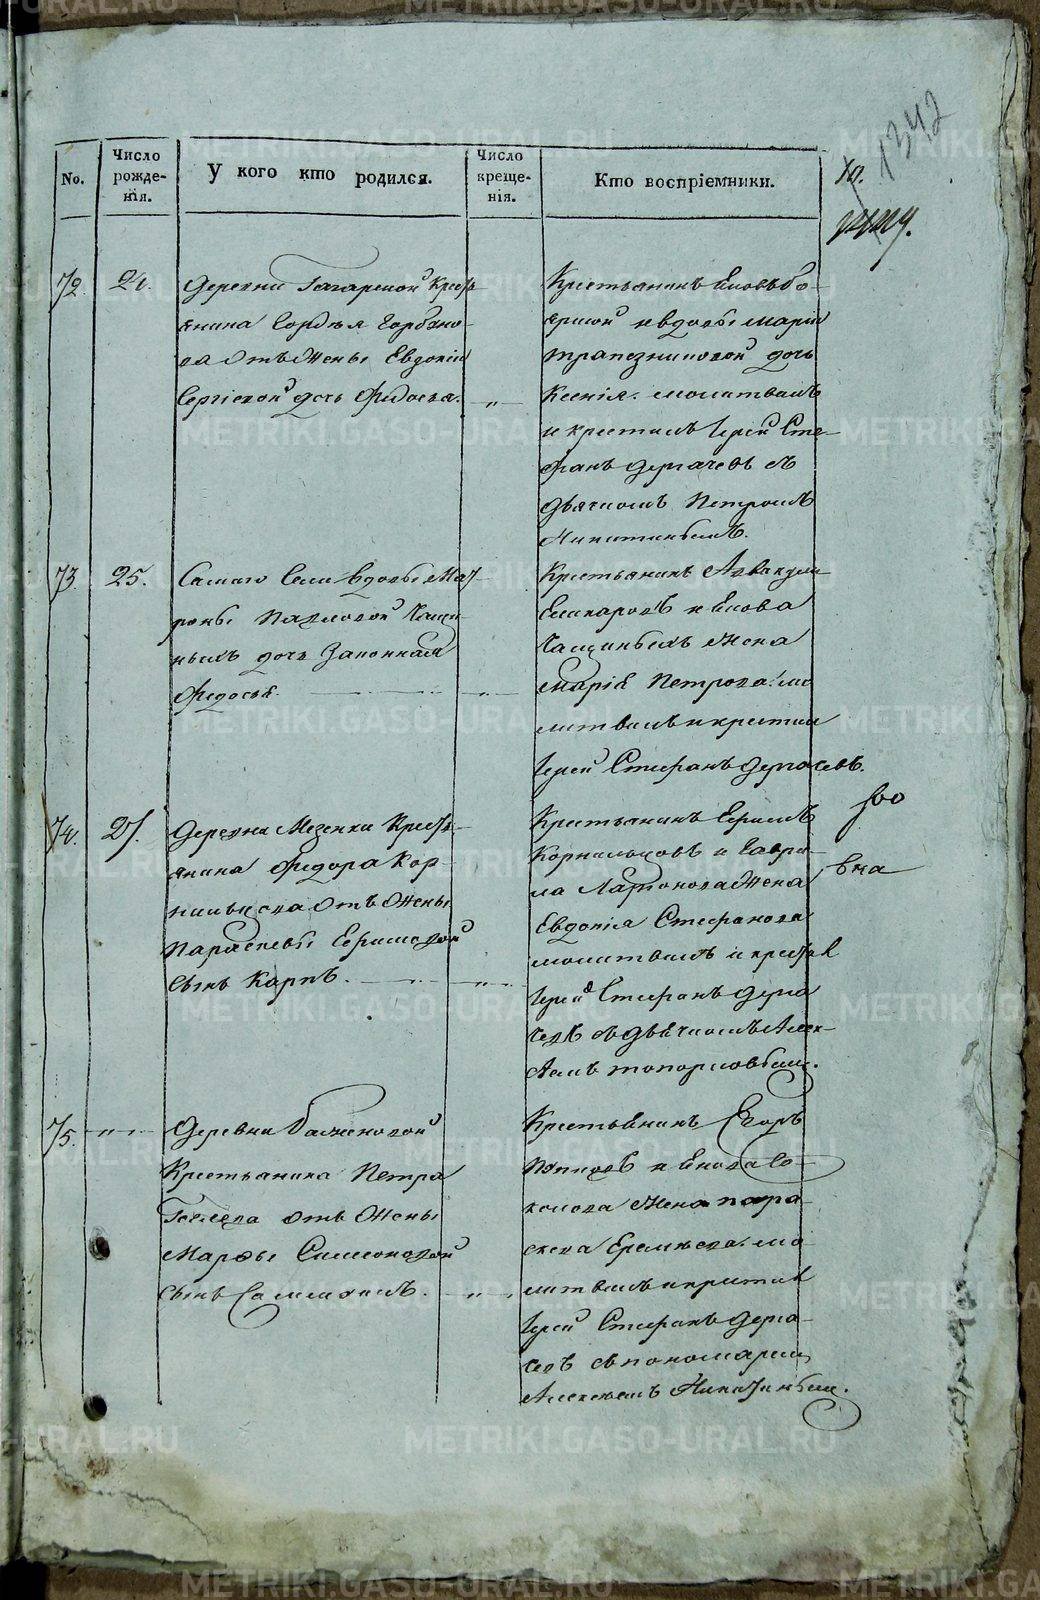 1342
No.
Число рожде-нія.
У кого кто родился.
Число креще-нія.
Кто воспріемники.
10.
72.
24.
Деревни Гагарской Кресть
янина
Горбуно-
ва отъ жены Евдокіи
Сергіевой дочь Федосья.
"
Крестьянинъ
и вдовы Марiи
Трапезниковой дочь
Ксенія. молитвилъ
и крестилъ Іерей Сте-
фанъ Дергачевъ съ
дьячкомъ Петромъ
Никитинымъ.
73.
25.
Самаго Села вдовы Мат-
роны Павловой Чащи-
ныхъ дочь Законная
Федосья.
"
Крестьянинъ Аввакумъ
и Екова
Чащиныхъ Жена
Марія Петрова. мо
литвилъ и крестил
Іерей Стефанъ Дергачевъ.
74.
27.
Деревни Мезенки Кресть-
янина Федора Кор-
нильцова отъ Жены
Параскевы Ефимовой
Сынъ Карпъ.
"
Крестьянинъ Ефимъ
Корнильцовъ и Гаври-
ла Ларіонова Жена
Евдокія Стефанова
молитвилъ и крестил
Іерей Стефанъ Дерга
чевъ съ дьячкомъ Алек-
Топорковымъ.
75.
"
Деревни Баженовой
Крестьянина Петра
отъ Жены
Марѳы Симеоновой
Сынъ
"
Крестьянинъ Егоръ
Поповъ и Екова Со-
колова Жена Пара-
скева Еремѣева. мо-
литвилъ и крестил
Іерей Стефанъ Дерга-
чевъ съ пономаремъ
Алексѣемъ Никитинымъ.
METRIKI.GASO-URAL.RU